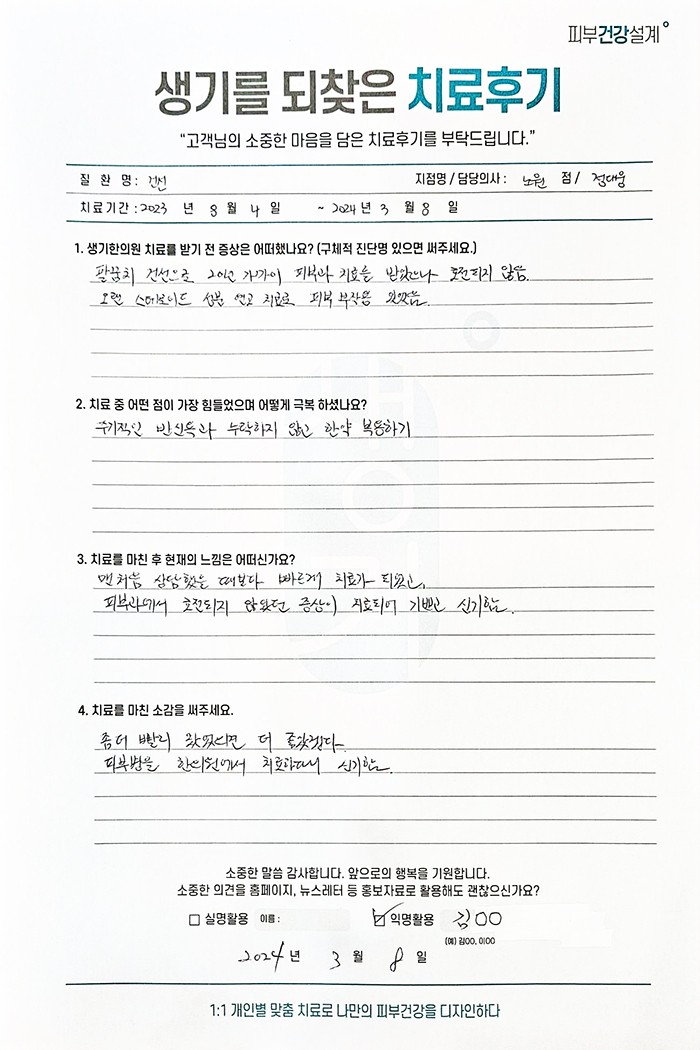 피부건강설계
생기를 되찾은 치료후기
“고객님의 소중한 마음을 담은 치료후기를 부탁드립니다.”
질 환 명 : 건선 지점명 / 담당의사 : 노원 점 / 정대웅
치료기간 : 2023 년 8 월 4 일 ~ 2024 년 3 월 8 일
1. 생기한의원 치료를 받기 전 증상은 어떠했나요? (구체적 진단명 있으면 써주세요.)
팔꿈치 건선으로 20년 가까이 피부과 치료를 받았으나 호전되지 않음.
오랜 스테로이드 성분 연고 치료로 피부 부작용 있었음.
2. 치료 중 어떤 점이 가장 힘들었으며 어떻게 극복 하셨나요?
주기적인 반신욕과 누락하지 않고 한약 복용하기
3. 치료를 마친 후 현재의 느낌은 어떠신가요?
맨처음 상담했을 때보다 빠르게 치료가 되었고,
피부과에서 호전되지 않았던 증상이 치료되어 기쁘고 신기함.
4. 치료를 마친 소감을 써주세요.
좀더 빨리 왔었으면 더 좋았겠다.
피부병을 한의원에서 치료하다니 신기함.
소중한 말씀 감사합니다. 앞으로의 행복을 기원합니다.
소중한 의견을 홈페이지, 뉴스레터 등 홍보자료로 활용해도 괜찮으신가요?
실명활용 이름 : 익명활용 김OO
(예) 김OO, 이OO
2024 년 3 월 8 일
1:1 개인별 맞춤 치료로 나만의 피부건강을 디자인하다